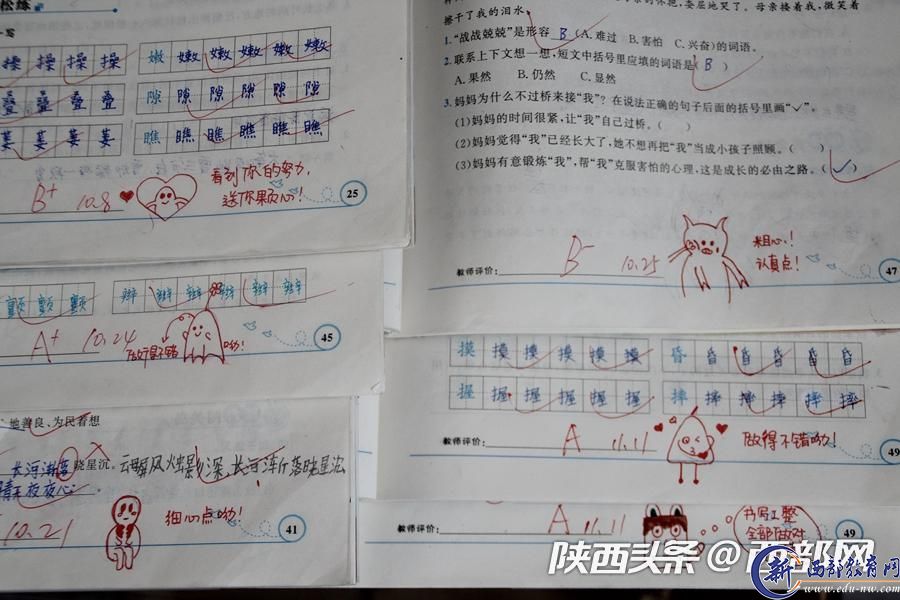 松练
写
操 操 操 操 嫩 嫩 嫩 嫩 嫩 嫩
叠 叠 叠 叠 隙 隙 隙 隙 隙 隙
萎 萎 萎 萎 瞧 瞧 瞧 瞧 瞧 瞧
看到你的努力,
送你颗心!
B+ 10.8
25
擦干了我的泪水。
1.“战战兢兢”是形容 B (A.难过 B.害怕 C.兴奋)的词语。
2.联系上下文想一想,短文中括号里应填的词语是( B )
A.果然 B.仍然 C.显然
3.妈妈为什么不过桥来接“我”?在说法正确的句子后面的括号里画“✓”。
(1)妈妈的时间很紧,让“我”自己过桥。( )
(2)妈妈觉得“我”已经长大了,她不想再把“我”当成小孩子照顾。( )
(3)妈妈有意锻炼“我”,帮“我”克服害怕的心理,这是成长的必由之路。(✓)
粗心!
认真点!
教师评价: B 10.25
47
颤 颤 颤 辫 辫 辫 辫 辫
A+ 10.24
做得不错呦!
45
摸 摸 摸 摸 摸 摸 昏 昏 昏 昏 昏 昏
握 握 握 握 握 握 摔 摔 摔 摔 摔 摔
教师评价: A 11.11
做得不错呦!
49
地善良、为民着想
长河渐落 晓星沉。云屏风烛影深,长河渐落晓星沉
青天夜夜心
10.21
细心点呦!
41
教师评价: A 11.11
书写工整
全部做对
49
陕西头条@西部网
新 西部教育网
www.edu-nw.com